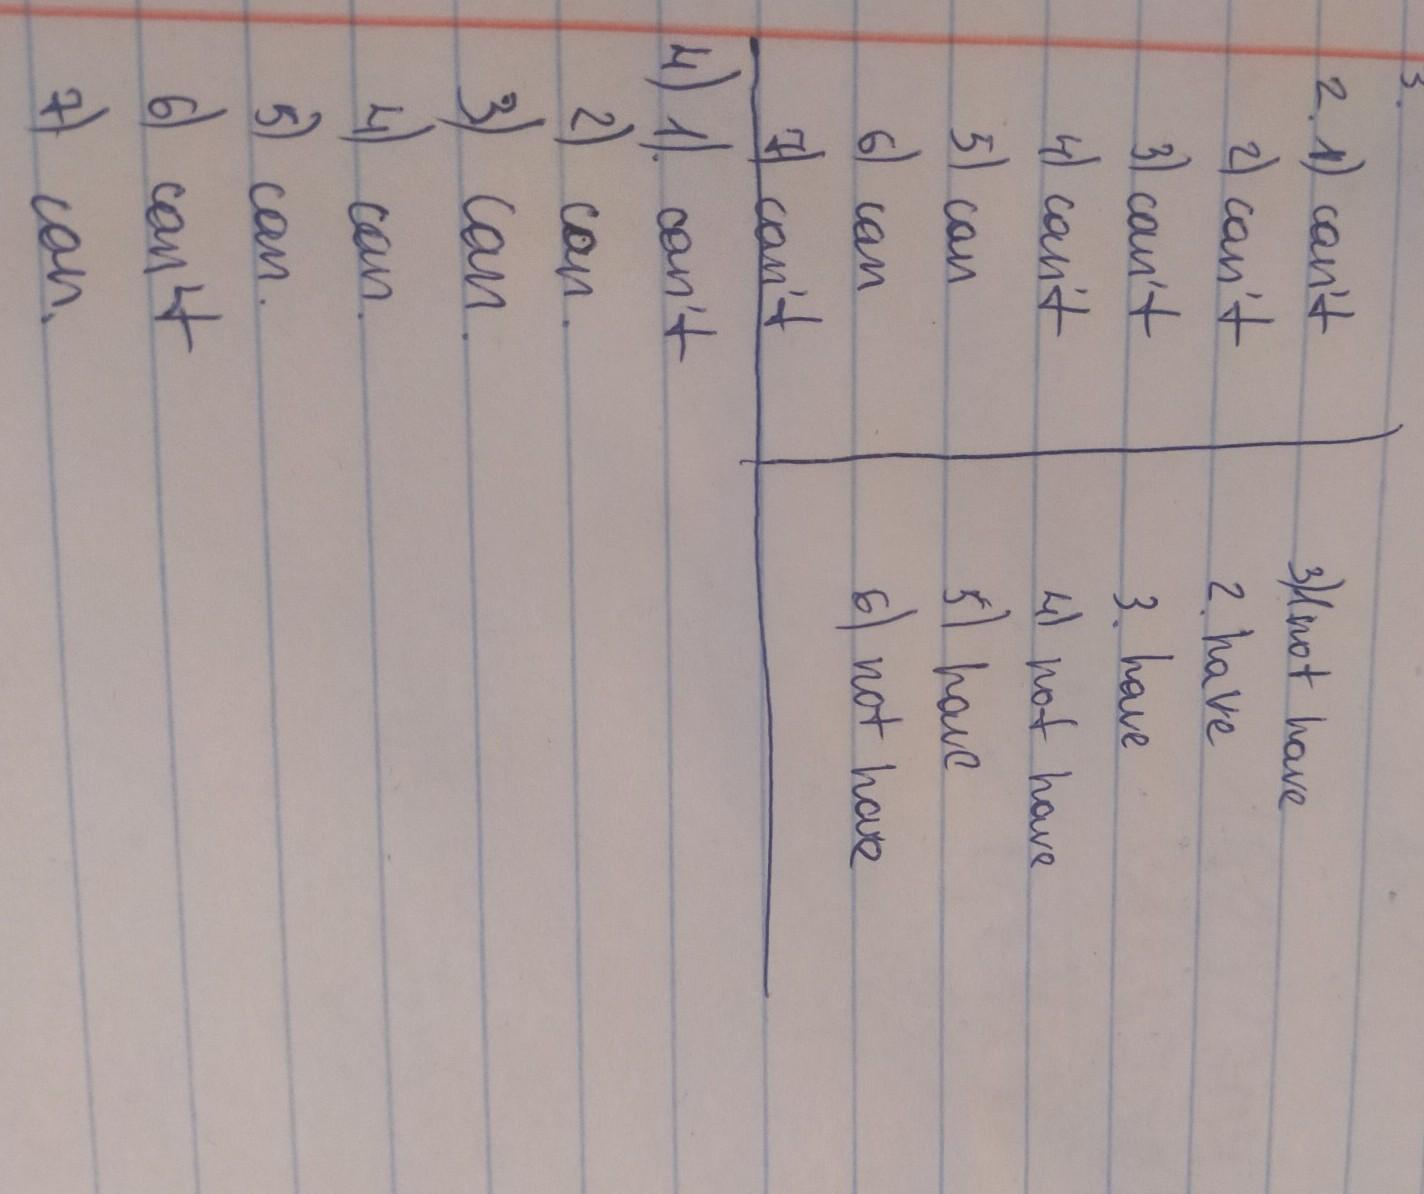 3.
2. 1) can't
2) can't
3) can't
4) can't
5) can
6) can
7) can't
3) 1 not have
2. have
3. have
4) not have
5) have
6) not have
4) 1). can't
2) can.
3) can.
4) can.
5) can.
6) can't
7) can.